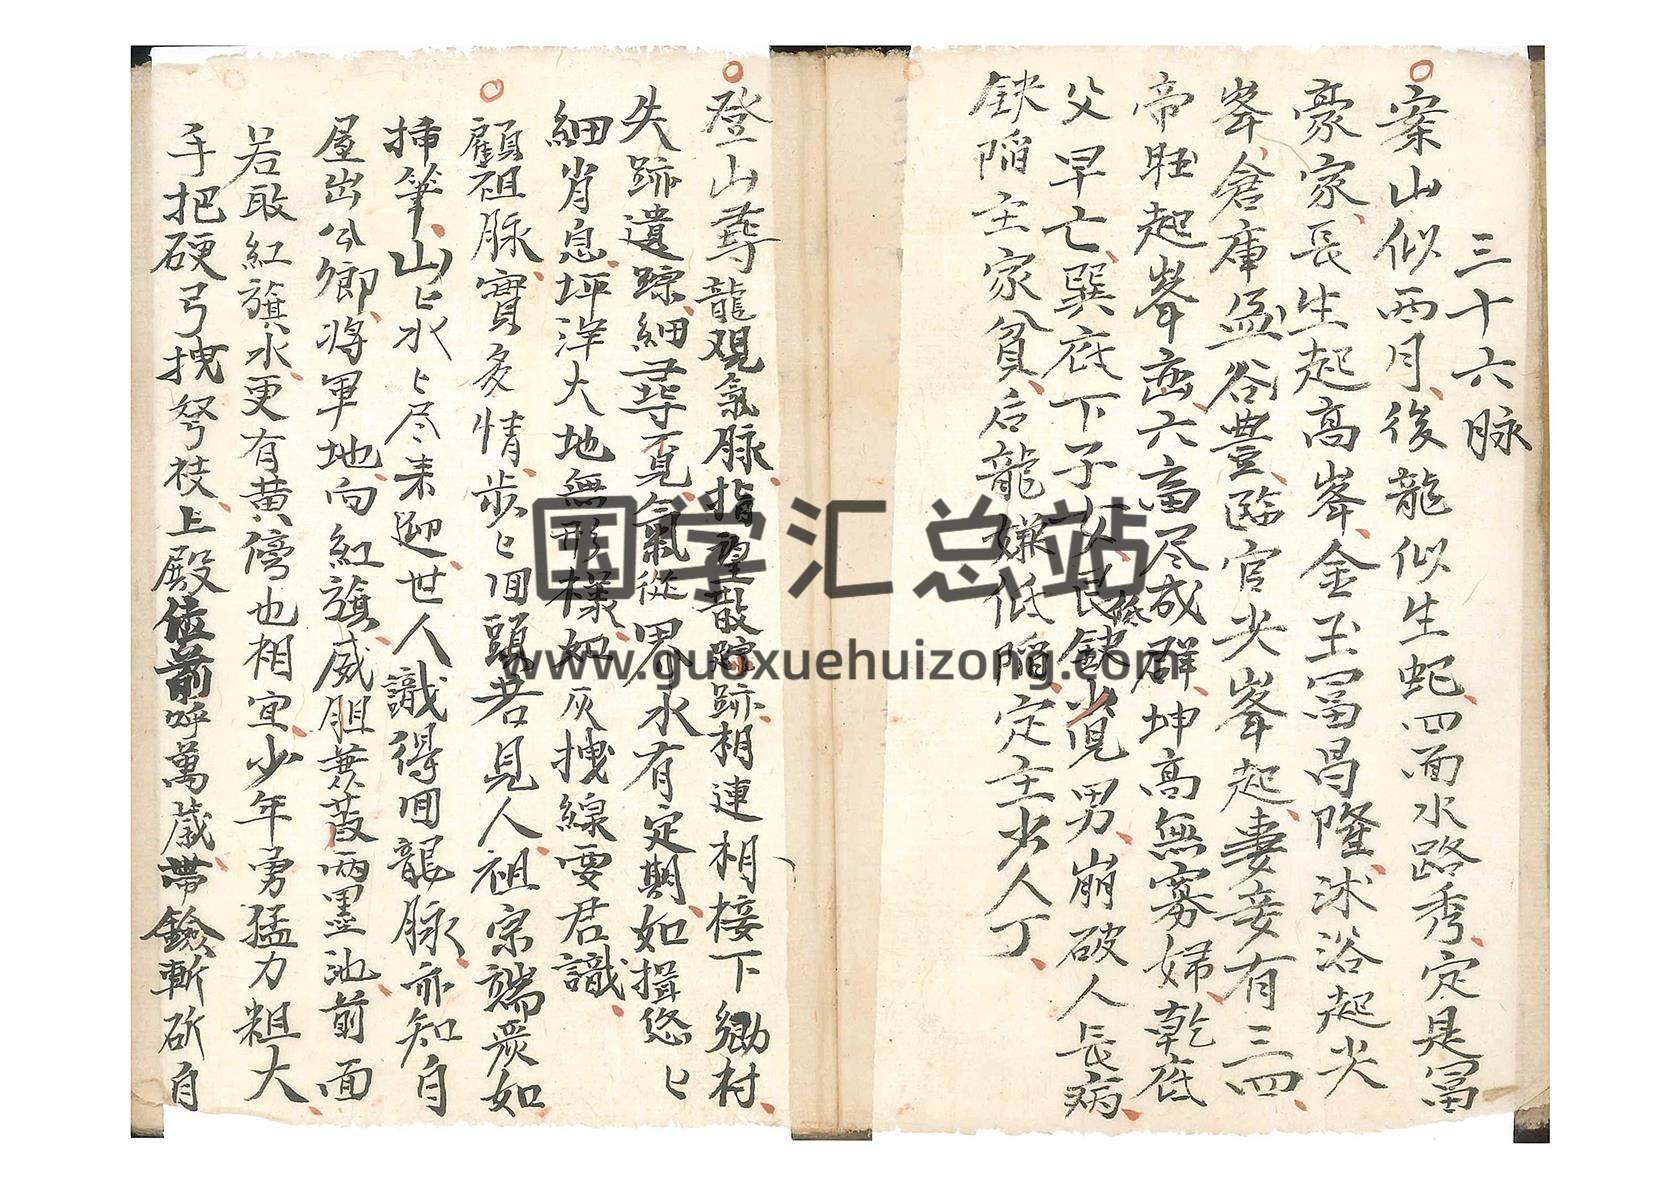 三十六脉
案山似両月後龍似生蛇四面水路秀定是冨
豪家長生起高峯金玉冨昌隆沭浴起尖
峯倉庫盈谷豊臨官尖峯起妻妾有三四
帝旺起峯峦六畜尽成群坤高無寡婦乾底
父早亡巽底下子女艮低𫓹少児男崩破人長病
𫓹陷主家貧后龍嫌低陷定主少人丁
登山尋龍观氣脉指望散踪跡相連相接下鄉村
失跡遺踪細尋不見氣從界水有定期如揖悠匕
細肖息坪洋大地無形樣如灰拽線要君識
顧祖脉實多情步匕囬頭若見人祖宗端嚴如
揷筆山匕水匕尽来迎世人識得囬龍脉亦知自
屋出公卿将軍地向紅旗威胆兼葭両墨池前面
若敢紅旗水更有黄傍也相宜少年勇猛力粗大
手把硬弓拽弩枝上殿位前呼萬歲帶鐱斬斫自
国学汇总站
www.guoxuehuizong.com